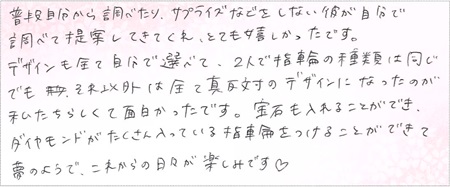 普段自分から調べたり、サプライズなどをしない彼が自分で
調べて提案してきてくれ、とても嬉しかったです。
デザインも全て自分で選べて、2人で指輪の種類は同じ
でも それ以外は全て真反対のデザインになったのが
私たちらしくて面白かったです。宝石も入れることができ、
ダイヤモンドがたくさん入っている指輪をつけることができて
夢のようで、これからの日々が楽しみです♡